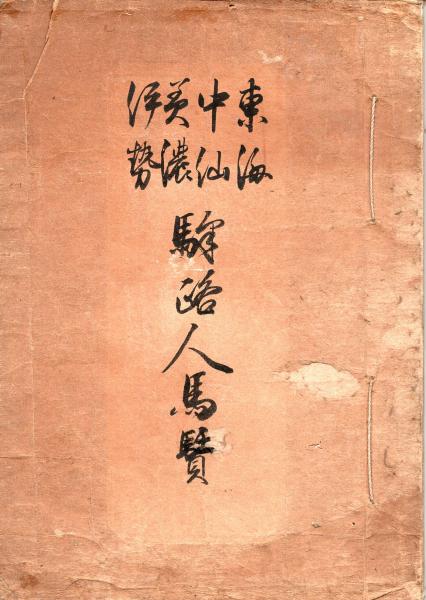 東海
中仙
美濃
伊勢
驛路人馬賃